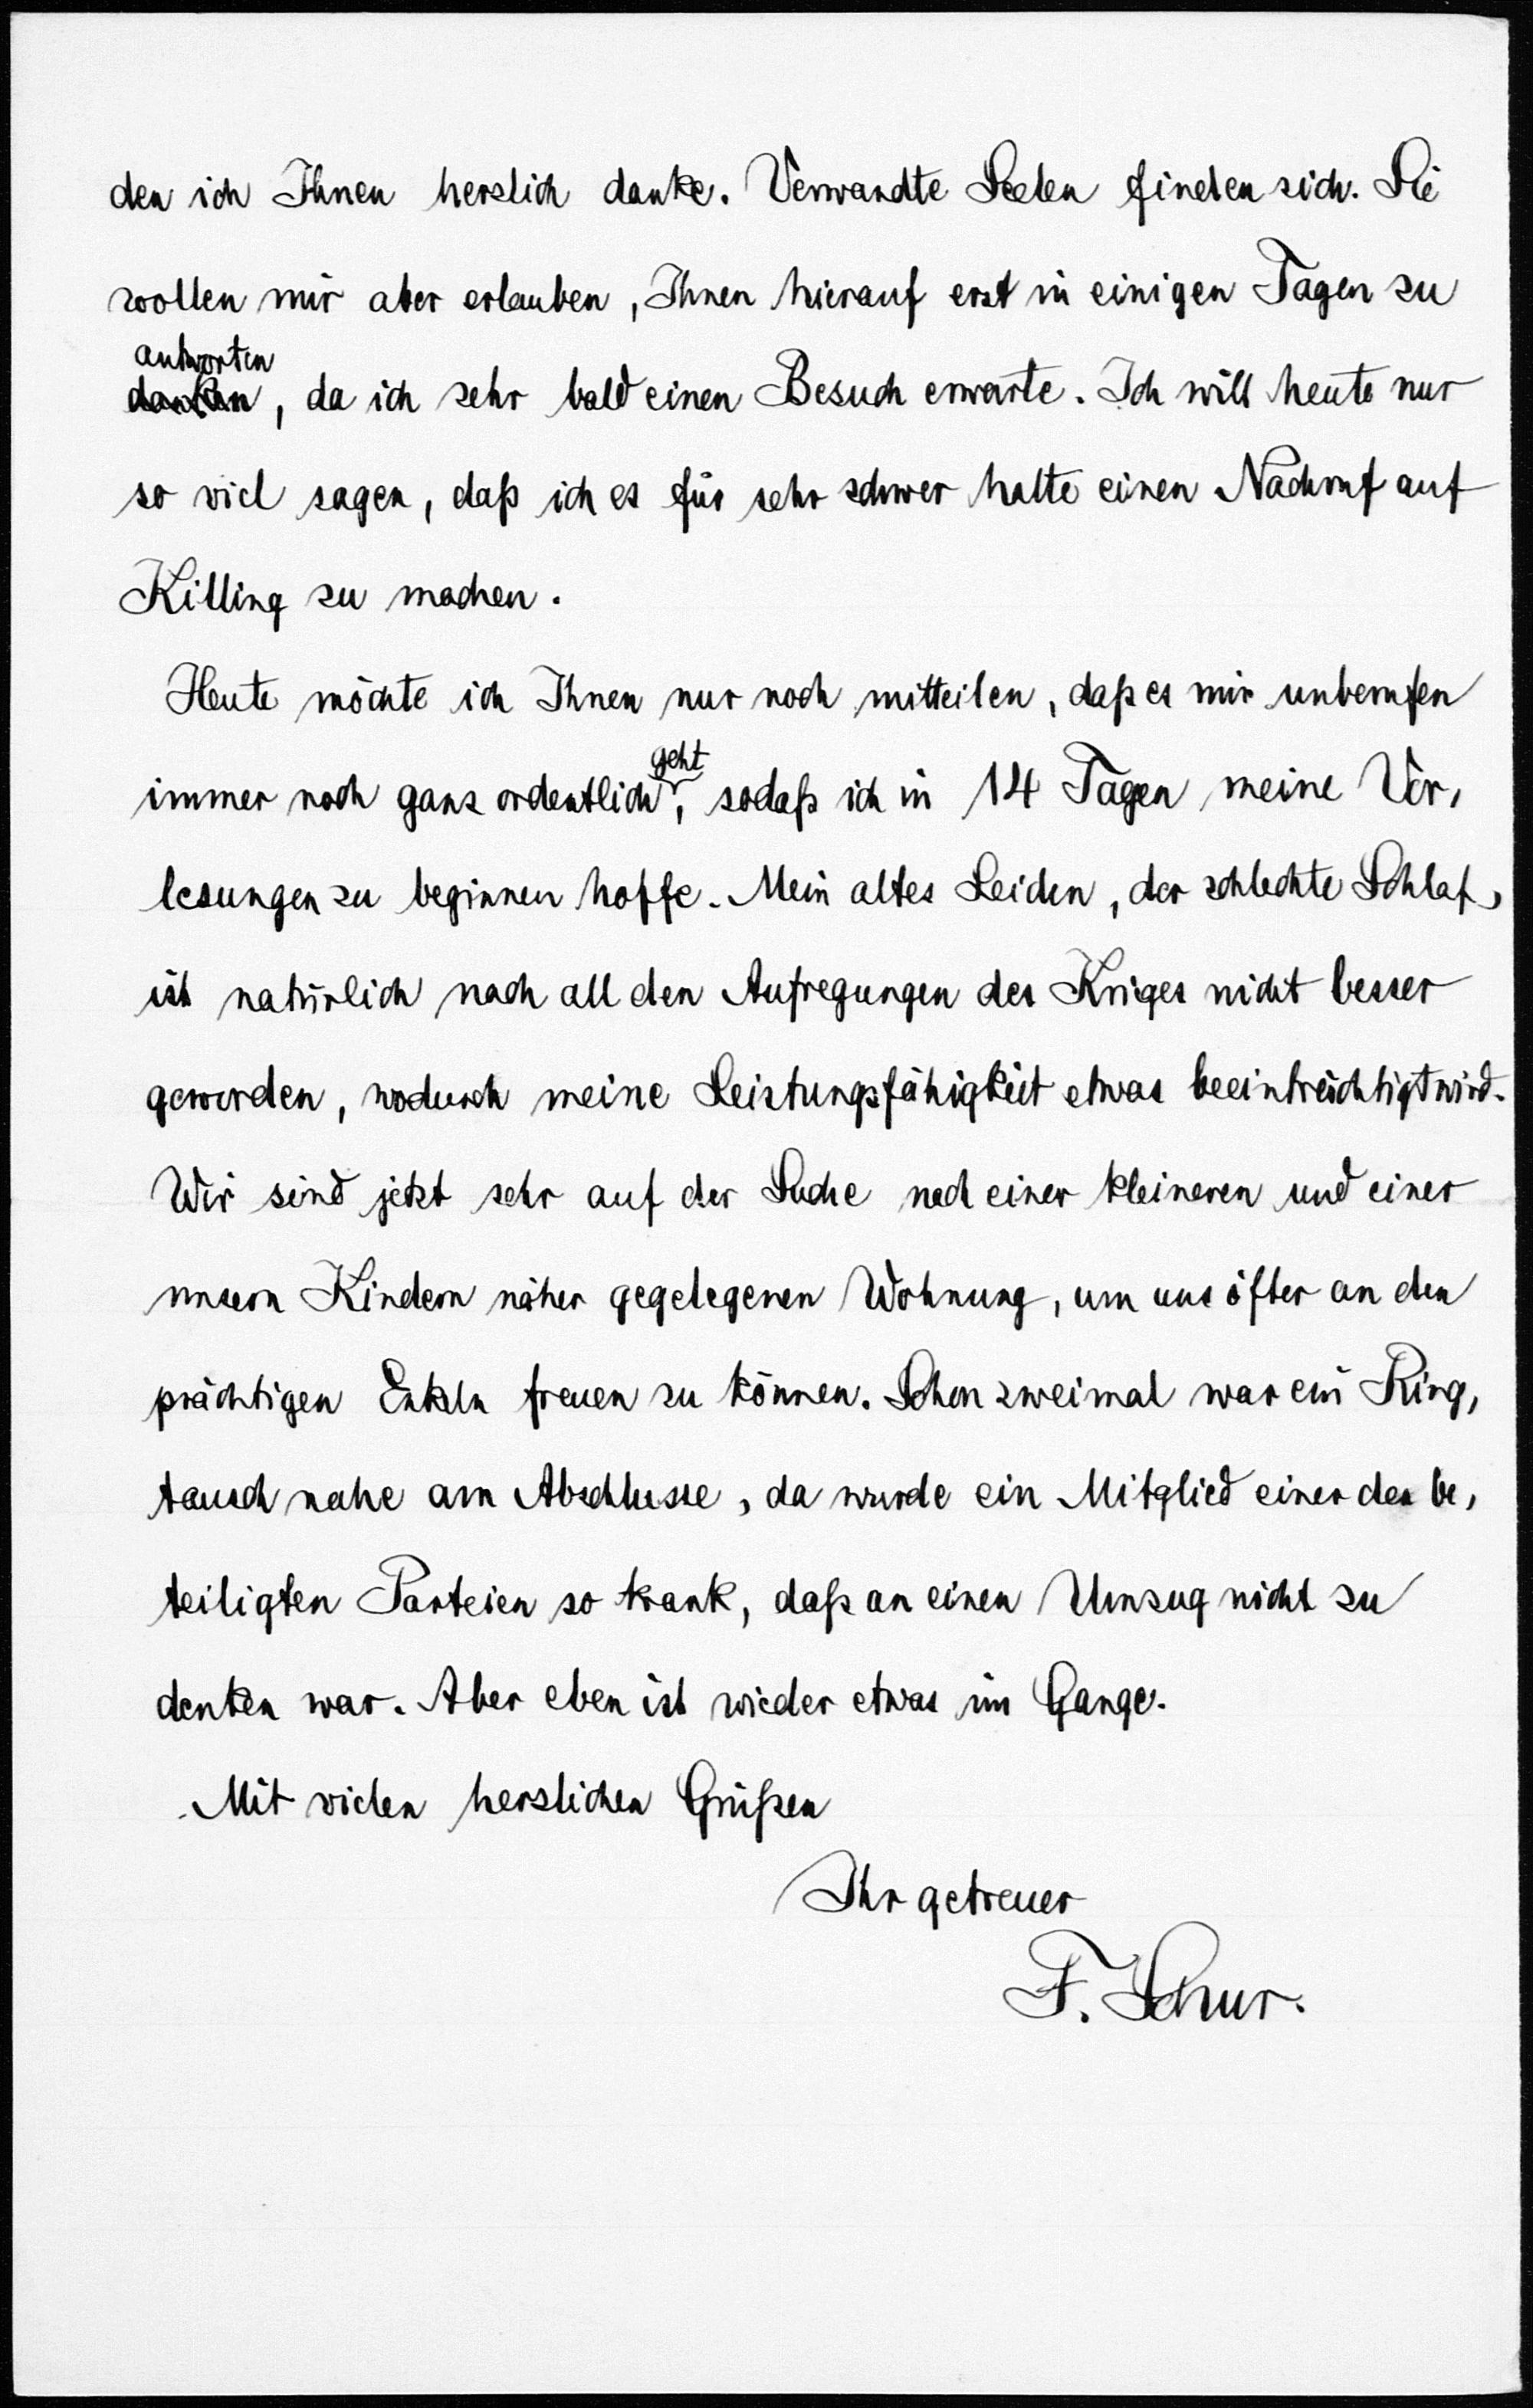 den ich Ihnen herzlich danke. Verwandte Seelen finden sich. Sie
wollen mir aber erlauben, Ihnen hierauf erst in einigen Tagen zu
antworten
danken, da ich sehr bald einen Besuch erwarte. Ich will heute nur
so viel sagen, daß ich es für sehr schwer halte einen Nachruf auf
Killing zu machen.
Heute möchte ich Ihnen nur noch mitteilen, daß es mir unberufen
immer noch ganz ordentlich geht, sodaß ich in 14 Tagen meine Vor,
lesungen zu beginnen hoffe. Mein altes Leiden, der schlechte Schlaf,
ist natürlich nach all den Aufregungen des Krieges nicht besser
geworden, wodurch meine Leistungsfähigkeit etwas beeinträchtigt wird.
Wir sind jetzt sehr auf der Suche nach einer kleineren und einer
unsern Kindern näher gegelegenen Wohnung, um uns öfter an den
prächtigen Enkeln freuen zu können. Schon zweimal war ein Ring,
tausch nahe am Abschlusse, da wurde ein Mitglied einer der be,
teiligten Parteien so krank, daß an einen Umzug nicht zu
denken war. Aber eben ist wieder etwas im Gange.
Mit vielen herzlichen Grüßen
Ihr getreuer
F. Schur.